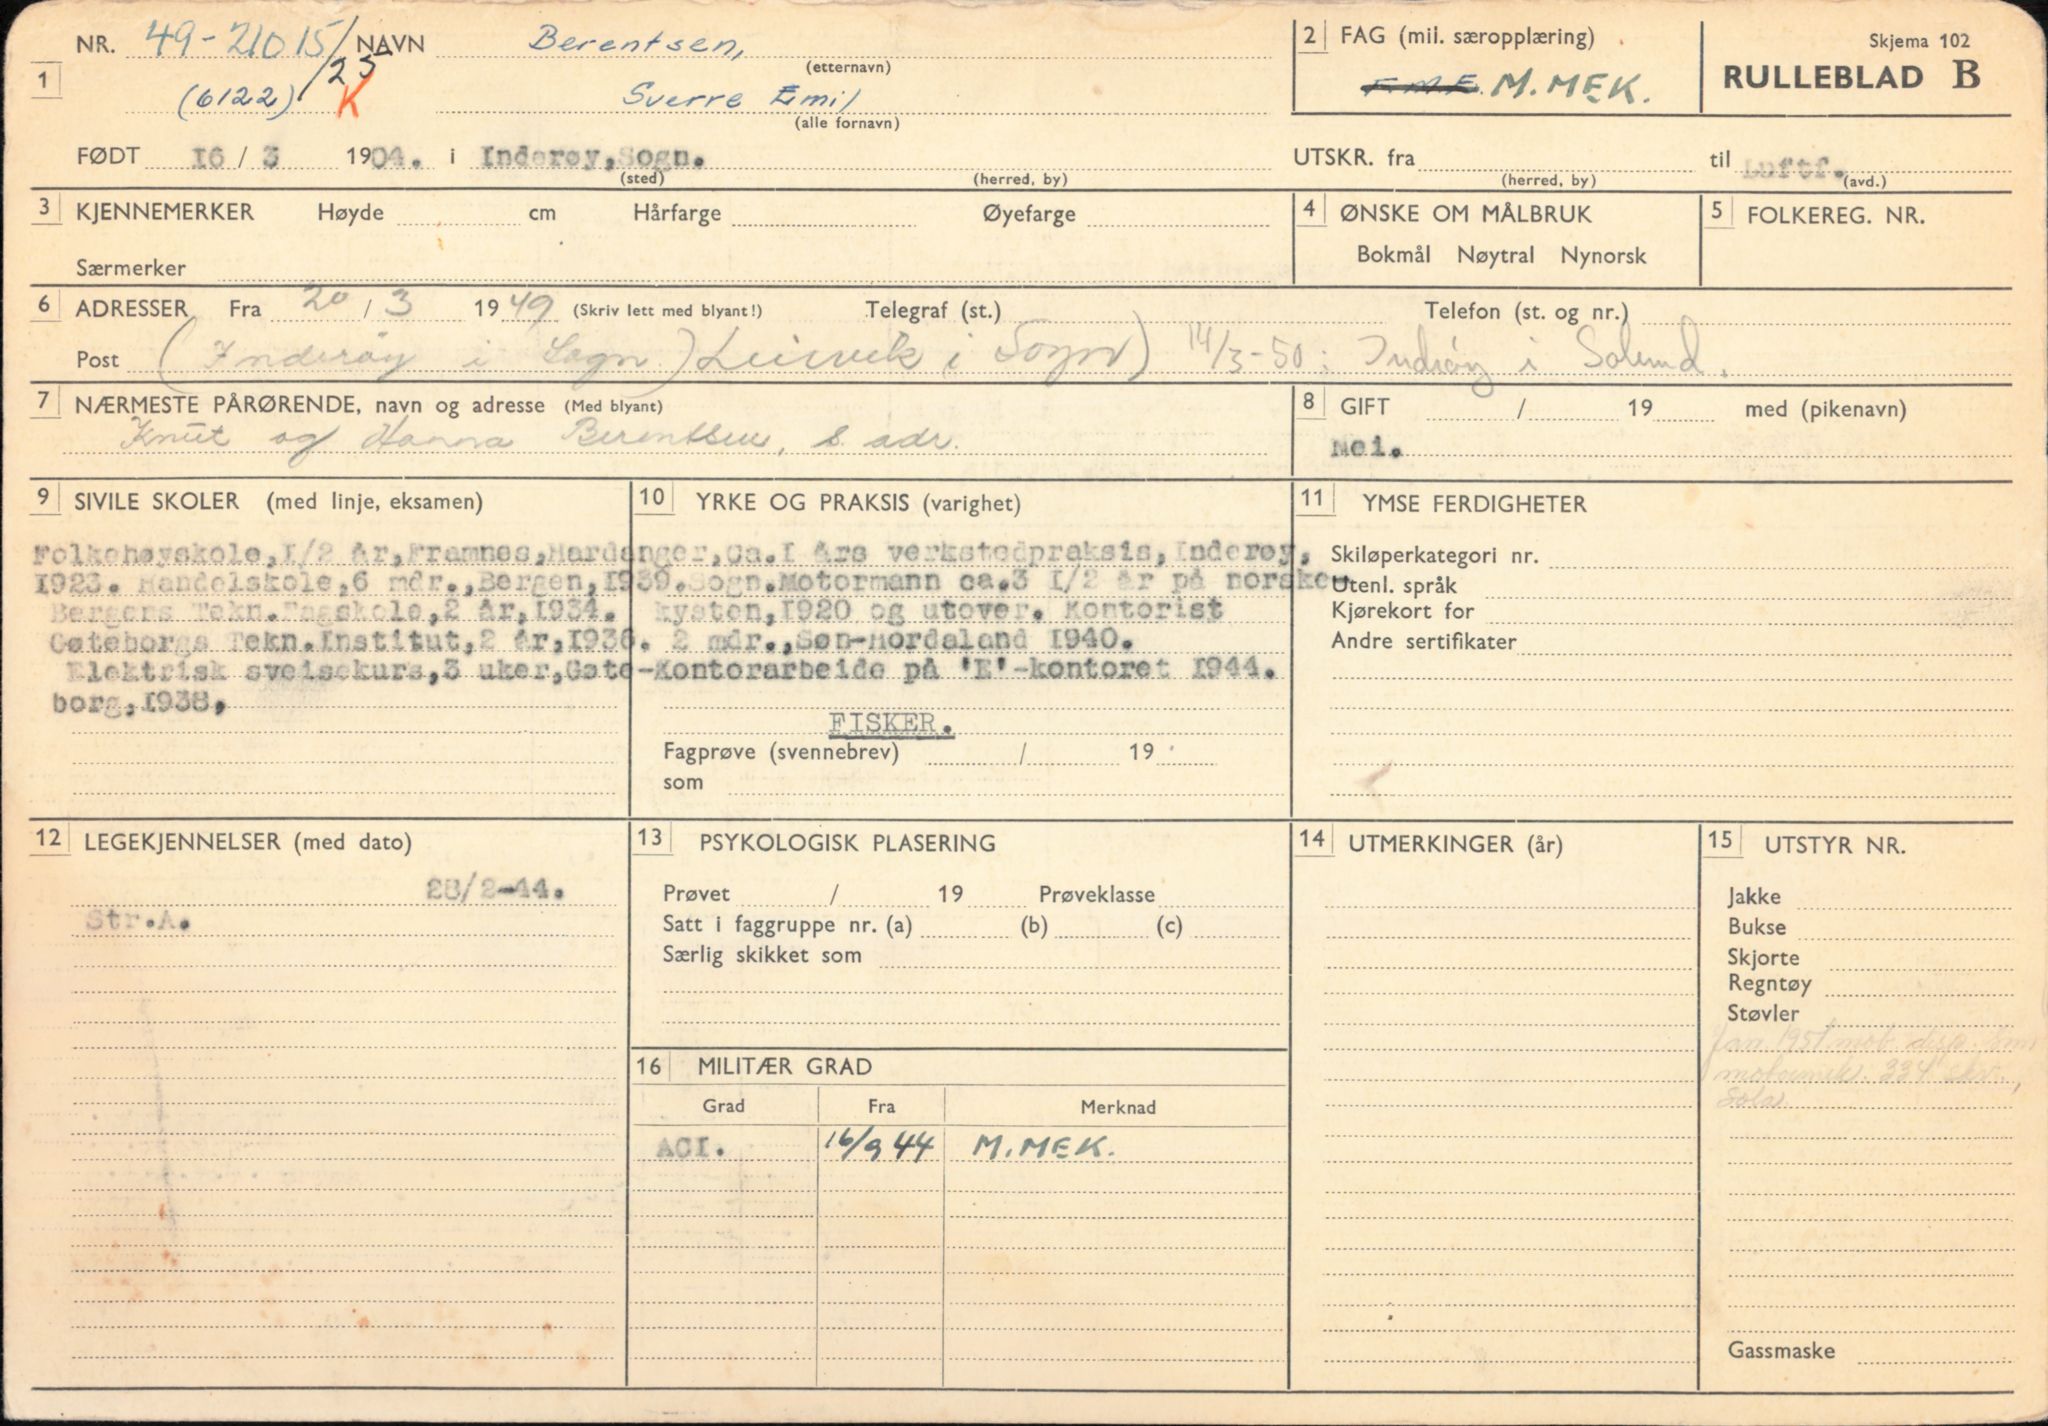 1 NR. 49-21015/25 NAVN Berentsen, (etternavn)
(6122) K Sverre Emil (alle fornavn)
FØDT 16/3 1904. i Inderøy, Sogn. (sted) (herred, by)
2 FAG (mil. særopplæring)
F.M.E. M.MEK.
Skjema 102
RULLEBLAD B
UTSKR. fra (herred, by) til Luftf. (avd.)
3 KJENNEMERKER Høyde cm Hårfarge Øyefarge
Særmerker
4 ØNSKE OM MÅLBRUK
Bokmål Nøytral Nynorsk
5 FOLKEREG. NR.
6 ADRESSER Fra 20/3 1949 (Skriv lett med blyant!) Telegraf (st.) Telefon (st. og nr.)
Post (Inderøy i Sogn) Leirvik i Sogn) 14/3-50: Indrøy i Solund.
7 NÆRMESTE PÅRØRENDE, navn og adresse (Med blyant)
Knut og Hanna Berentsen, s. adr.
8 GIFT / 19 med (pikenavn)
Nei.
9 SIVILE SKOLER (med linje, eksamen)
Folkehøyskole,I/2 år,Framnes,Hardanger,
I923. Handelskole,6 mdr.,Bergen,I939.
Bergens Tekn.Fagskole,2 år,I934.
Gøteborgs Tekn.Institut,2 år,I936.
Elektrisk sveisekurs,3 uker,Gøte-
borg,I938,
10 YRKE OG PRAKSIS (varighet)
Ca.I års verkstedpraksis,Inderøy,
Sogn.Motormann ca.3 I/2 år på norske-
kysten,I920 og utover. Kontorist
2 mdr.,Søn-Hordaland I940.
Kontorarbeide på 'E'-kontoret I944.
FISKER.
Fagprøve (svennebrev) / 19
som
11 YMSE FERDIGHETER
Skiløperkategori nr.
Utenl. språk
Kjørekort for
Andre sertifikater
12 LEGEKJENNELSER (med dato)
28/2-44.
Str.A.
13 PSYKOLOGISK PLASERING
Prøvet / 19 Prøveklasse
Satt i faggruppe nr. (a) (b) (c)
Særlig skikket som
14 UTMERKINGER (år)
15 UTSTYR NR.
Jakke
Bukse
Skjorte
Regntøy
Støvler
Jan. 1951 mob. disp. Som
motormek. 334 skv.,
Sola
Gassmaske
16 MILITÆR GRAD
Grad Fra Merknad
ACI. 16/9 44 M.MEK.